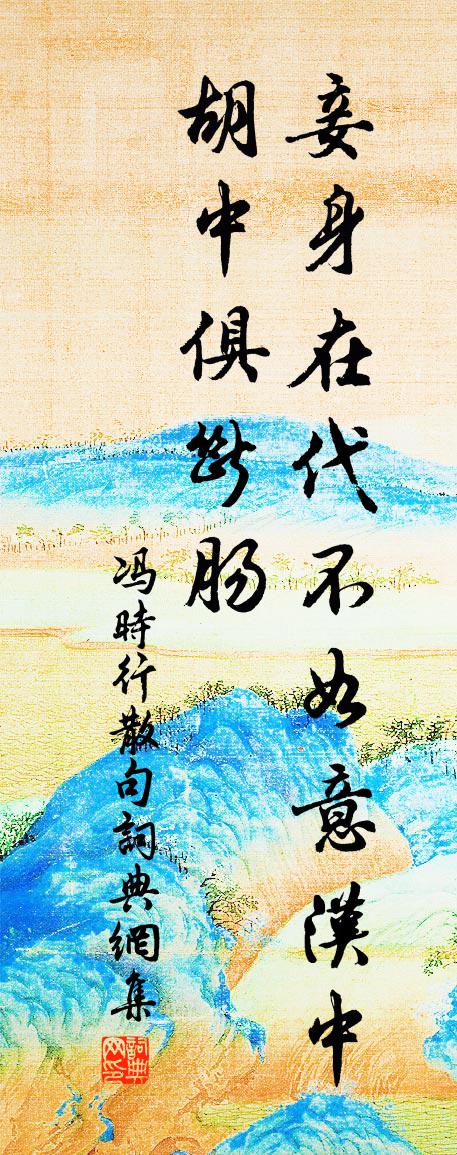 妾身在代不如意漢中
胡中俱斷肠
冯時行散句詞典網集
詞典网印